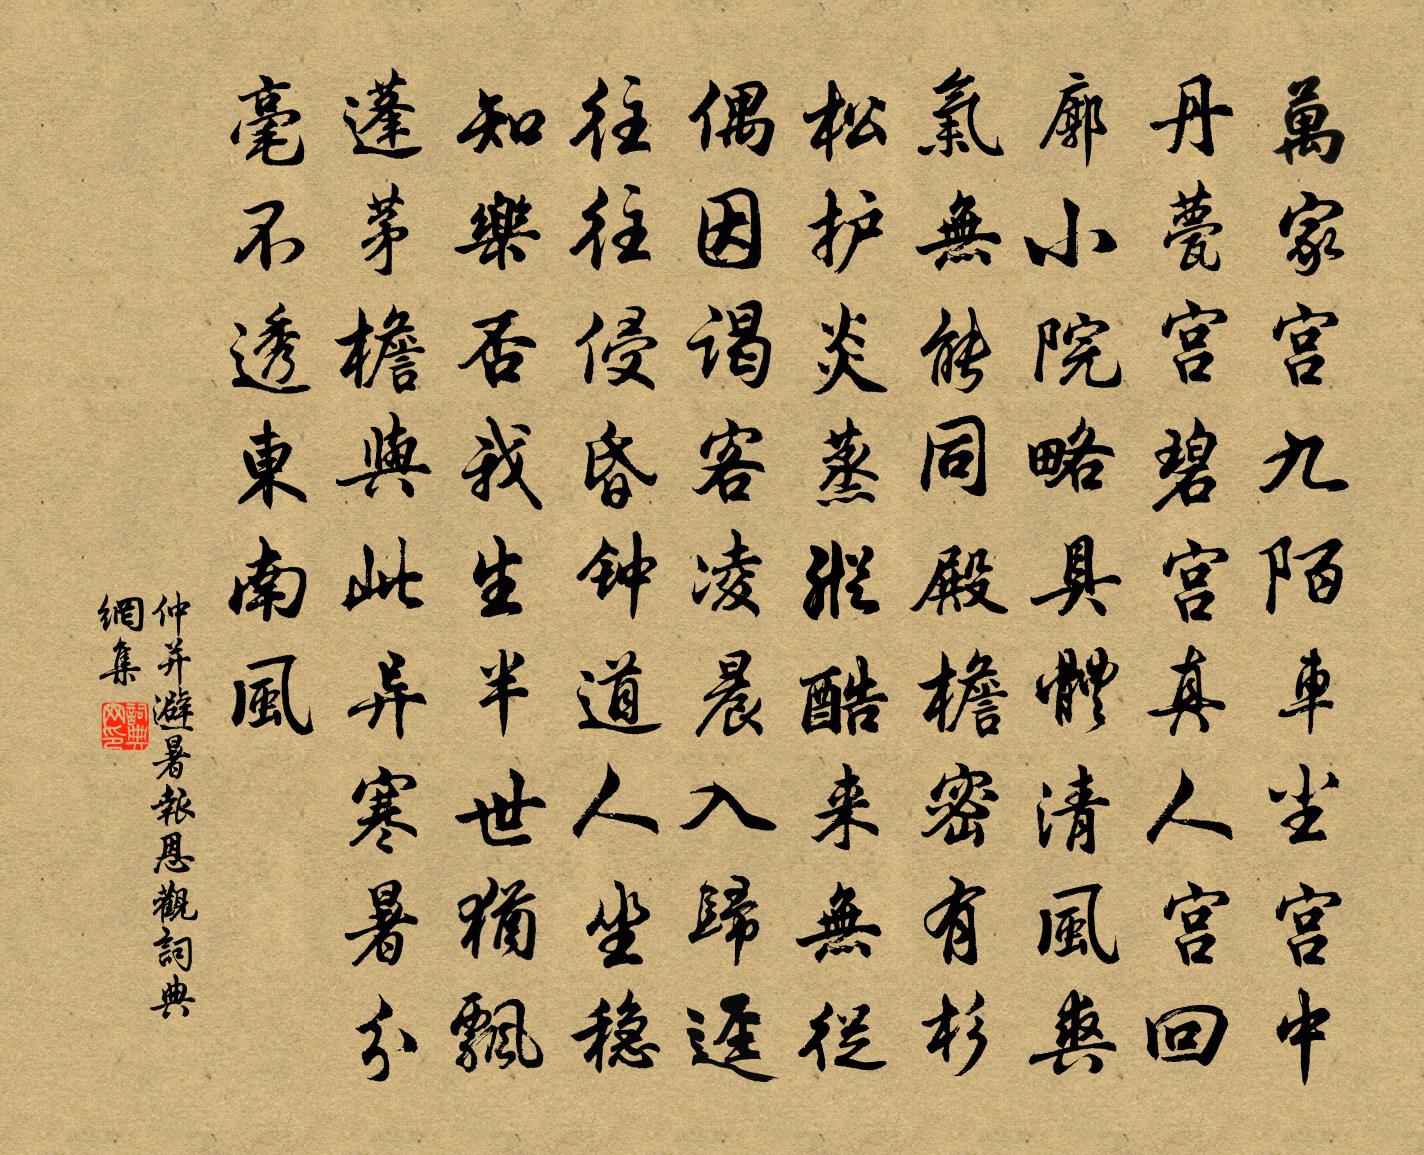 萬家宫九陌車尘宫中
丹甍宫碧宫真人宫回
廓小院略具體清風爽
氣無能同殿檐密有杉
松护炎蒸縱酷来無從
偶因谒客凌晨入歸遲
往往侵昏钟道人坐穏
知樂否我生半世猶飄
蓬茅檐與此异寒暑分
毫不透東南風
仲并避暑報恩觀詞典
網集
詞典
网印